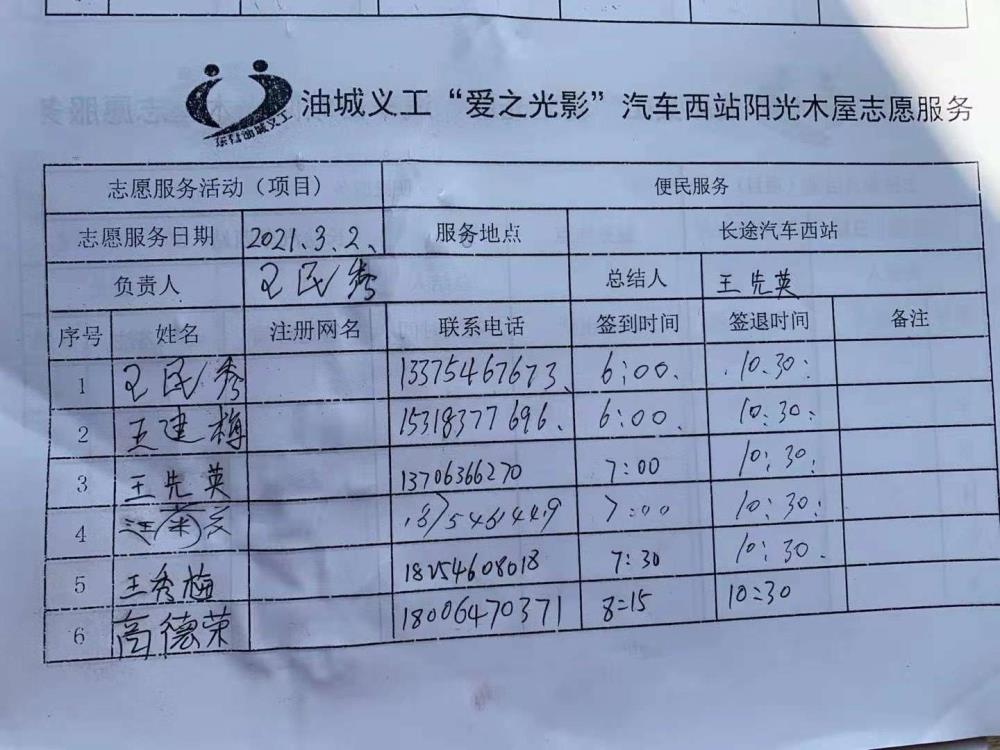 东营油城义工
油城义工“爱之光影”汽车西站阳光木屋志愿服务
志愿服务活动(项目) 便民服务
志愿服务日期 2021.3.2、 服务地点 长途汽车西站
负责人 王民秀 总结人 王先英
序号 姓名 注册网名 联系电话 签到时间 签退时间 备注
1 王民秀 13375467673、 6:00、 10.30:
2 王建梅 15318377696、 6:00、 10:30:
3 王先英 13706366270 7:00 10:30:
4 7:00 10:30:
5 王秀梅 18254608018 7:30 10:30.
6 高德荣 18006470371 8=15 10=30